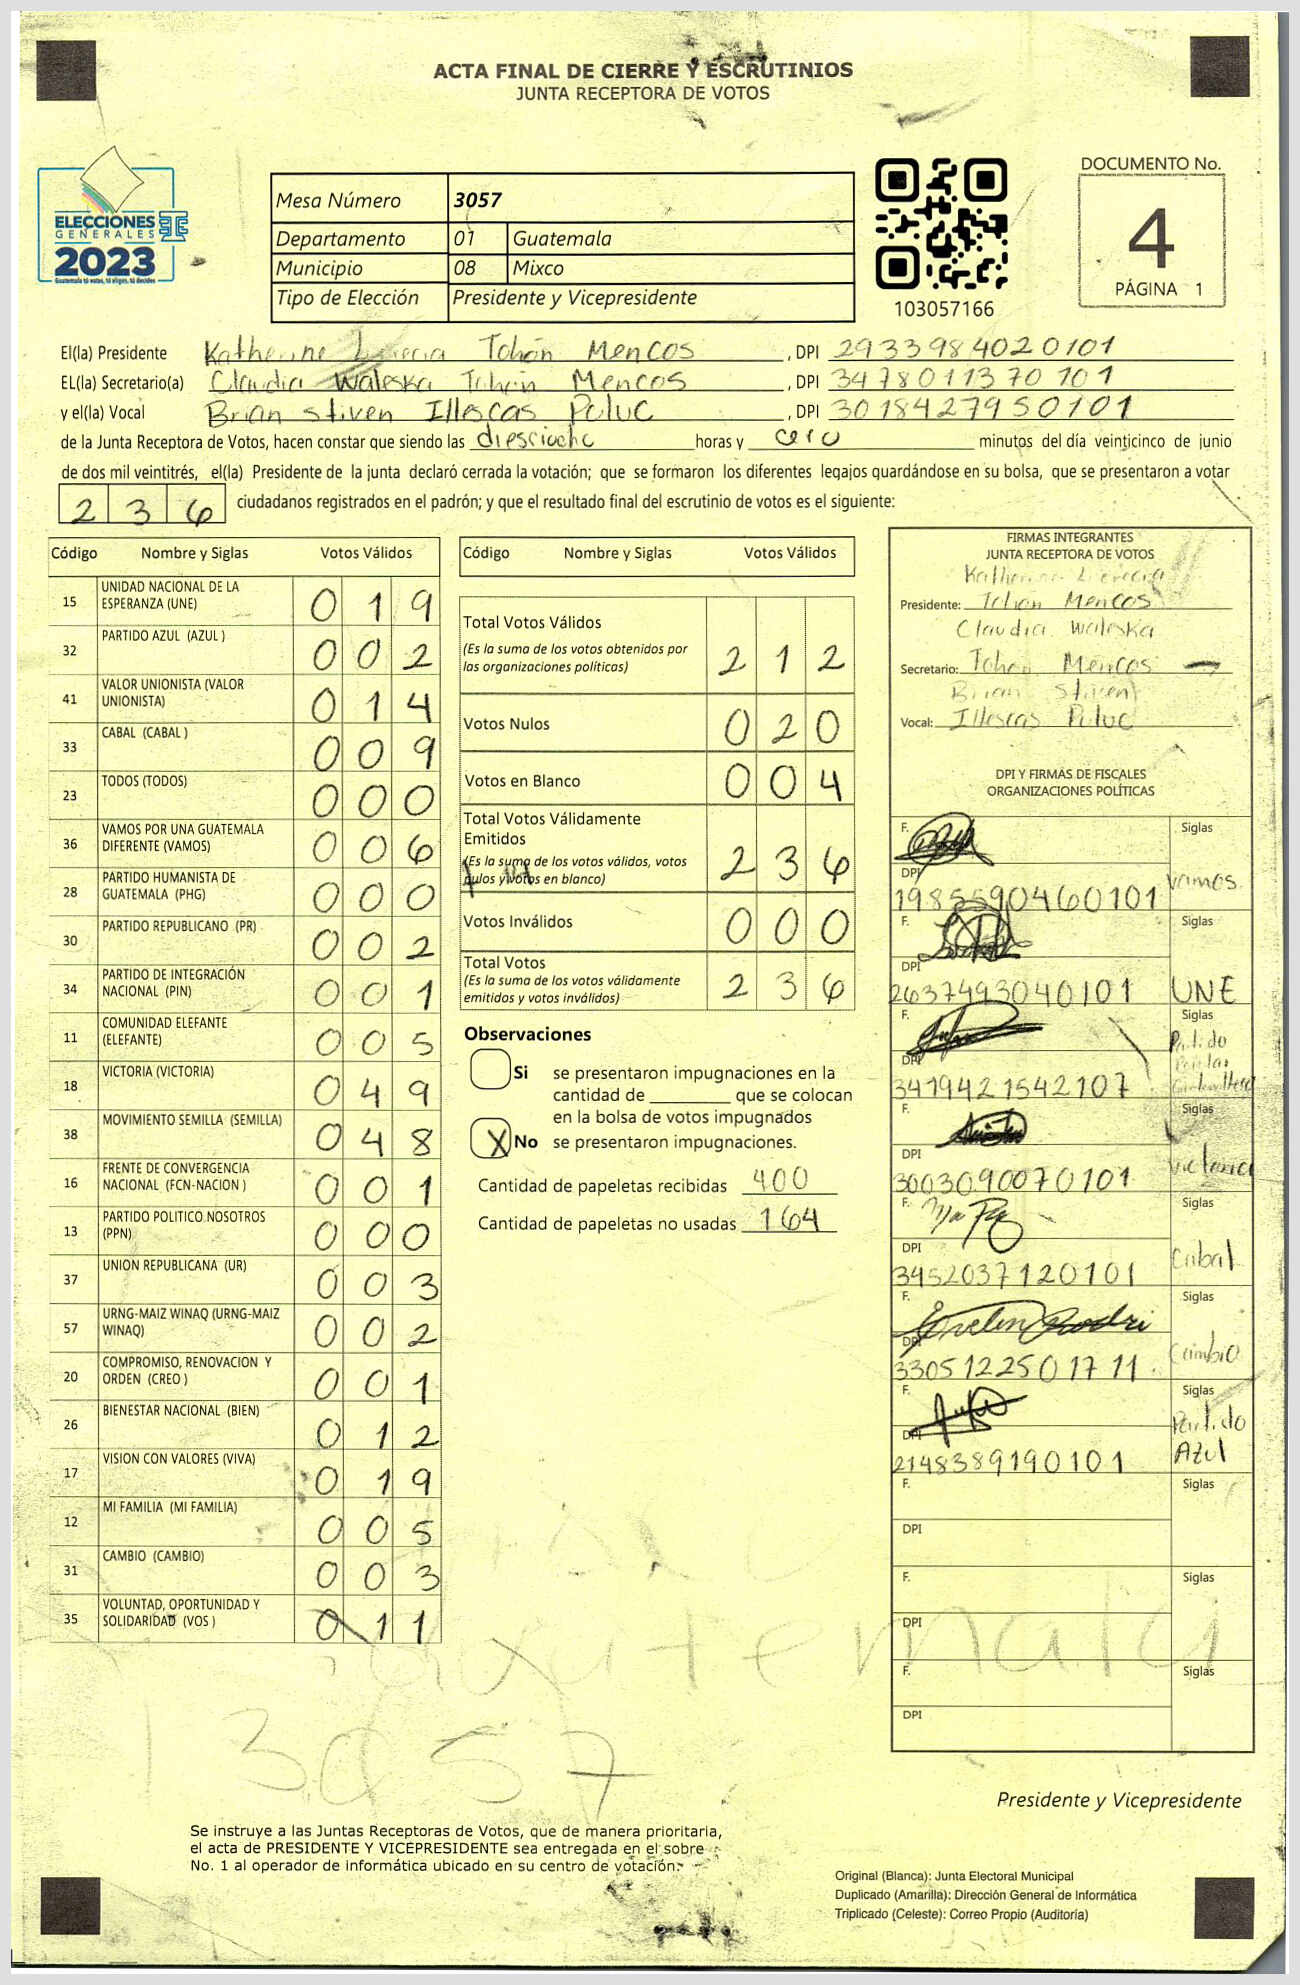 ACTA FINAL DE CIERRE Y ESCRUTINIOS
JUNTA RECEPTORA DE VOTOS
ELECCIONES
GENERALES
2023
Guatemala tú votas, tú eliges, tú decides
Mesa Número 3057
Departamento 01 Guatemala
Municipio 08 Mixco
Tipo de Elección Presidente y Vicepresidente
103057166
DOCUMENTO No.
4
PÁGINA 1
El(la) Presidente Katherine Tohón Mencos, DPI 2933984020101
EL(la) Secretario(a) Claudia Waleska Tohón Mencos, DPI 3478011370101
y el(la) Vocal Brian Stiven Illescas Puluc, DPI 3018427950101
de la Junta Receptora de Votos, hacen constar que siendo las diesciocho horas y cero minutos del día veinticinco de junio
de dos mil veintitrés, el(la) Presidente de la junta declaró cerrada la votación; que se formaron los diferentes legajos guardándose en su bolsa, que se presentaron a votar
236 ciudadanos registrados en el padrón; y que el resultado final del escrutinio de votos es el siguiente:
Código Nombre y Siglas Votos Válidos
15 UNIDAD NACIONAL DE LA ESPERANZA (UNE) 019
32 PARTIDO AZUL (AZUL ) 002
41 VALOR UNIONISTA (VALOR UNIONISTA) 014
33 CABAL (CABAL ) 009
23 TODOS (TODOS) 000
36 VAMOS POR UNA GUATEMALA DIFERENTE (VAMOS) 006
28 PARTIDO HUMANISTA DE GUATEMALA (PHG) 000
30 PARTIDO REPUBLICANO (PR) 002
34 PARTIDO DE INTEGRACIÓN NACIONAL (PIN) 001
11 COMUNIDAD ELEFANTE (ELEFANTE) 005
18 VICTORIA (VICTORIA) 049
38 MOVIMIENTO SEMILLA (SEMILLA) 048
16 FRENTE DE CONVERGENCIA NACIONAL (FCN-NACION ) 001
13 PARTIDO POLITICO NOSOTROS (PPN) 000
37 UNION REPUBLICANA (UR) 003
57 URNG-MAIZ WINAQ (URNG-MAIZ WINAQ) 002
20 COMPROMISO, RENOVACION Y ORDEN (CREO ) 001
26 BIENESTAR NACIONAL (BIEN) 012
17 VISION CON VALORES (VIVA) 019
12 MI FAMILIA (MI FAMILIA) 005
31 CAMBIO (CAMBIO) 003
35 VOLUNTAD, OPORTUNIDAD Y SOLIDARIDAD (VOS ) 011
Código Nombre y Siglas Votos Válidos
Total Votos Válidos
(Es la suma de los votos obtenidos por
las organizaciones políticas) 212
Votos Nulos 020
Votos en Blanco 004
Total Votos Válidamente
Emitidos
(Es la suma de los votos válidos, votos
nulos y votos en blanco) 236
Votos Inválidos 000
Total Votos
(Es la suma de los votos válidamente
emitidos y votos inválidos) 236
Observaciones
Si se presentaron impugnaciones en la
cantidad de ________ que se colocan
en la bolsa de votos impugnados
X No se presentaron impugnaciones.
Cantidad de papeletas recibidas 400
Cantidad de papeletas no usadas 164
FIRMAS INTEGRANTES
JUNTA RECEPTORA DE VOTOS
Katherine
Presidente: Tohón Mencos
Claudia Waleska
Secretario: Tohón Mencos
Brian Stiven
Vocal: Illescas Puluc
DPI Y FIRMAS DE FISCALES
ORGANIZACIONES POLÍTICAS
F. Siglas
DPI
1985590460101 Vamos
F. Siglas
DPI
2637493040101 UNE
F. Siglas
DPI
3419421542107 Partido
F. Siglas
DPI
3003090070101 Victoria
F. Siglas
DPI
3452037120101 Cabal
F. Evelin Siglas
DPI
3305122501711 Cambio
F. Siglas
DPI
2148389190101 Partido Azul
F. Siglas
DPI
F. Siglas
DPI
F. Siglas
DPI
Guatemala
3057
Presidente y Vicepresidente
Se instruye a las Juntas Receptoras de Votos, que de manera prioritaria,
el acta de PRESIDENTE Y VICEPRESIDENTE sea entregada en el sobre
No. 1 al operador de informática ubicado en su centro de votación.
Original (Blanca): Junta Electoral Municipal
Duplicado (Amarilla): Dirección General de Informática
Triplicado (Celeste): Correo Propio (Auditoría)